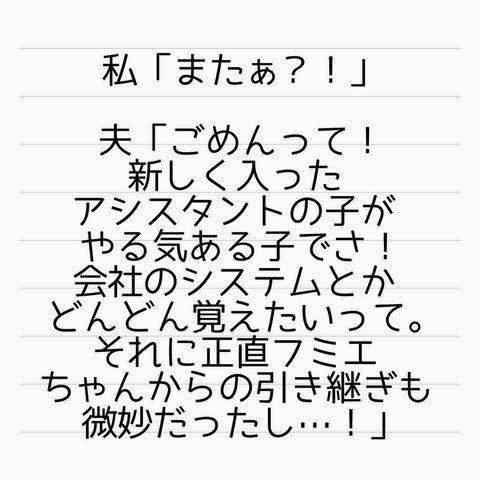 私「またぁ？！」
夫「ごめんって！
新しく入った
アシスタントの子が
やる気ある子でさ！
会社のシステムとか
どんどん覚えたいって。
それに正直フミエ
ちゃんからの引き継ぎも
微妙だったし…！」